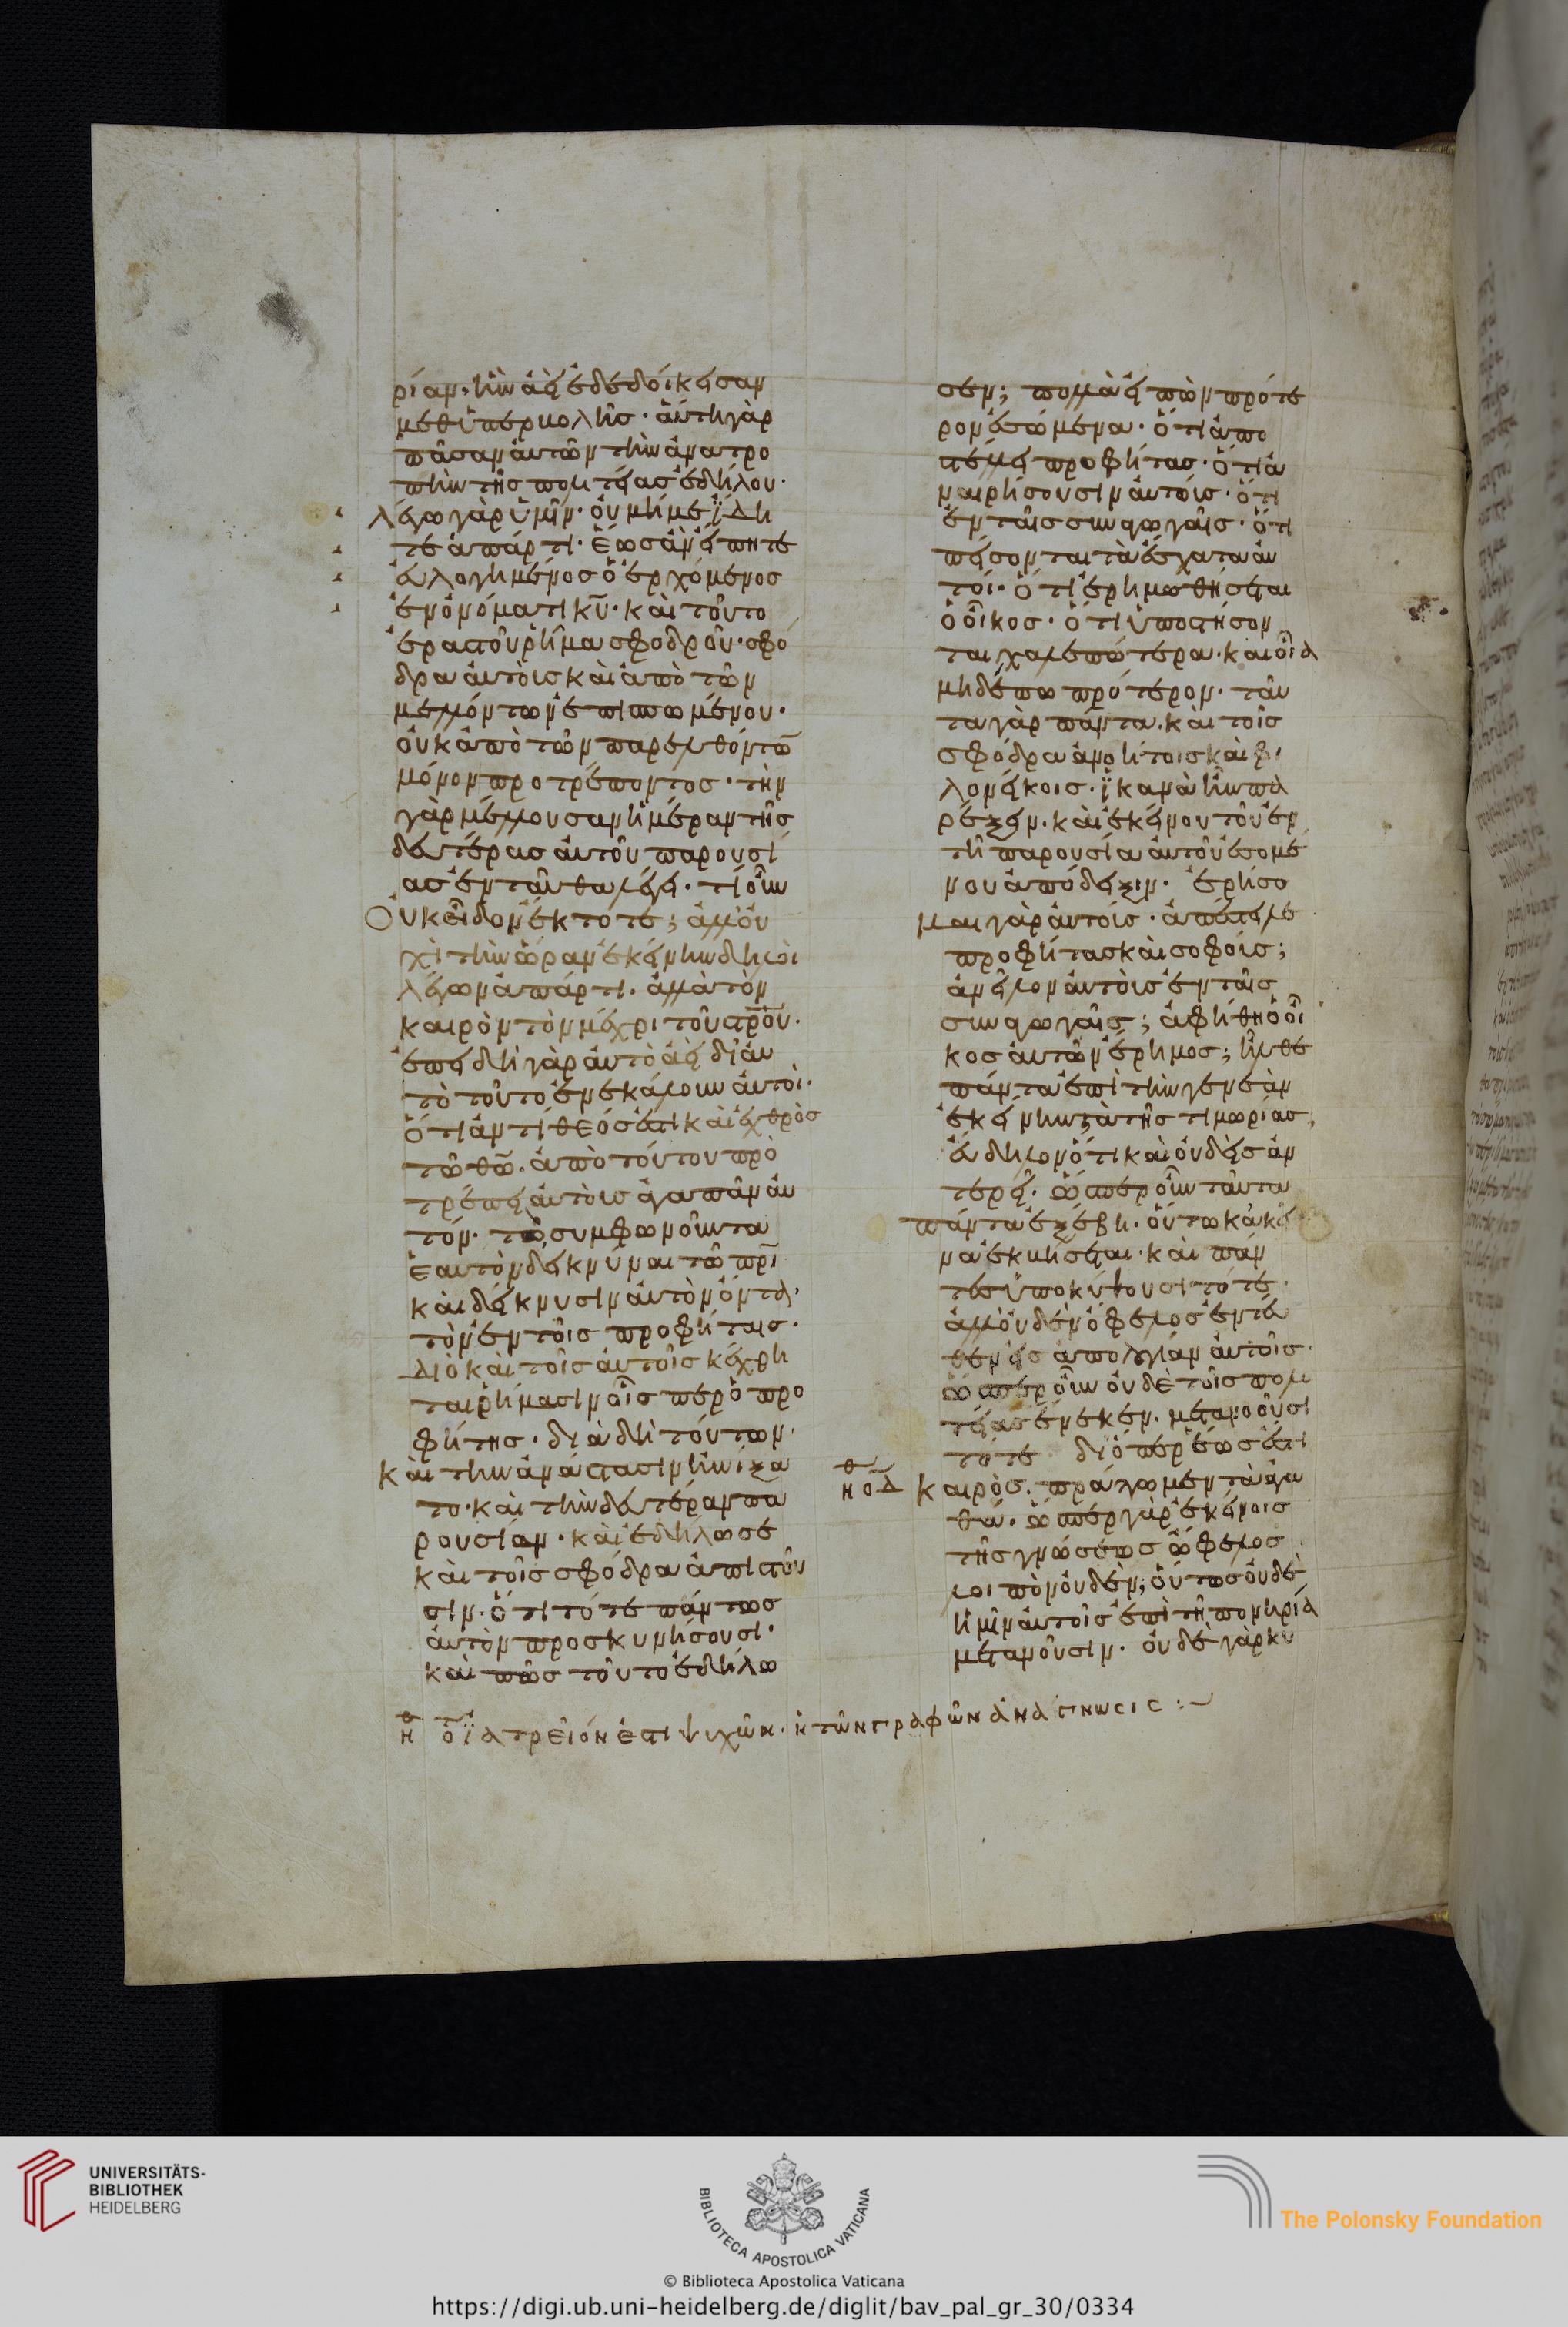 ρίαν· ἣν ἀεὶ ἐδεδοίκεισαν
μεθ ὑπερβολῆς· αὕτη γὰρ
πᾶσαν αὐτῶν τὴν ἀνατρο
πὴν τῆς πολιτείας ἐδήλου·
λέγω γὰρ ὑμῖν· οὐ μή με ἴδη
τε ἀπάρτι· ἕως ἂν εἴπητε
εὐλογημένος ὁ ἐρχόμενος
ἐν ὀνόματι κ̅υ̅· καὶ τοῦτο
ἐραστοῦ ῥῆμα σφοδροῦ· σφό
δρα αὐτοὺς καὶ ἀπὸ τῶν
μελλόντων ἐπισπωμένου·
οὐκ ἀπὸ τῶν παρελθόντω̅
μόνον προτρέποντος· τὴν
γὰρ μέλλουσαν ἡμέραν τῆς
δευτέρας αὐτοῦ παρουσί
ας ἐνταῦθα λέγει· τί οὖν
Οὐκ εἶδον ἔκτοτε; ἀλλ οὐ
χὶ τὴν ὥραν ἐκείνην δηλοῖ
λέγων ἀπάρτι· ἀλλὰ τὸν
καιρὸν τὸν μέχρι τοῦ σ̅τ̅ρ̅ο̅ῦ̅·
ἐπειδὴ γὰρ αὐτὸ ἀεὶ δι αὐ
τὸ τοῦτο ἐνεκάλουν αὐτοί·
ὅτι ἀντίθεός ἐστι καὶ ἐχθρὸς
τῶ θ̅ω̅· ἀπὸ τούτου προ
τρέπει αὐτοὺς ἀγαπᾶν αὐ
τόν· τῶ συμφωνοῦντα
ἑαυτὸν δεικνύναι τῶ π̅ρ̅ι̅
καὶ δείκνυσιν αὐτὸν ὄντα·
τὸν ἐν τοῖς προφήταις·
Διὸ καὶ τοῖς αὐτοῖς κέχρη
ται ῥήμασιν οἷσπερ ὁ προ
φήτης· διὰ δὴ τούτων·
Καὶ τὴν ἀνάστασιν ἠνίξα
το· καὶ τὴν δευτέραν πα
ρουσίαν· καὶ ἐδήλωσε
καὶ τοῖς σφόδρα ἀπιστοῦ
σιν· ὅτι τότε πάντως
αὐτὸν προσκυνήσουσι·
καὶ πῶς τοῦτο ἐδήλω
σεν; πολλὰ εἰπὼν πρότε
ρον ἐσόμενα· ὅτι ἀπο
στελεῖ προφήτας· ὅτι ἀ
ναιρήσουσιν αὐτούς· ὅτι
ἐν ταῖς συναγωγαῖς· ὅτι
πείσονται τὰ ἔσχατα αὐ
τοί· ὅτι ἐρημωθήσεται
ὁ οἶκος· ὅτι ὑποστήσον
ται χαλεπώτερα· καὶ οἷα
μηδέπω πρότερον· ταῦ
τα γὰρ πάντα· καὶ τοῖς
σφόδρα ἀνοήτοις καὶ φι
λονείκοις· ἱκανὰ ἦν πα
ρέξειν· καὶ ἐκείνου τοῦ ἐν
τῆ παρουσία αὐτοῦ ἐσομέ
νου ἀπόδειξιν· ἐρήσο
μαι γὰρ αὐτούς· ἀπέστειλε
προφήτας καὶ σοφούς;
ἀνεῖλον αὐτοὺς ἐν ταῖς
συναγωγαῖς; ἀφήθη ὁ οἶ
κος αὐτῶν ἔρημος; ἦλθε
πάντα ἐπὶ τὴν γενεὰν
ἐκείνην τὰ τῆς τιμωρίας;
εὔδηλον ὅτι καὶ οὐδεὶς ἀν
τερεῖ· ὥσπερ οὖν ταῦτα
πάντα ἐξέβη· οὕτω κἀκεῖ
να ἐκβήσεται· καὶ πάν
τες ὑποκύψουσι τότε·
ἀλλ οὐδὲν ὄφελος ἐντεῦ
θεν εἰς ἀπολογίαν αὐτοῖς·
ὥσπερ οὖν οὐδὲ τοῖς πολι
τείας ἕνεκεν· μετανοοῦσι
τότε διόπερ ἕως ἐστὶ
ἠθ ΟΔ Καιρὸς· πράττωμεν τὰ ἀγα
θά· ὥσπερ γὰρ ἐκείνοις
τῆς γνώσεως ὄφελος
λοιπὸν οὐδέν; οὕτως οὐδὲ
ἡμῖν αὐτοῖς ἐπὶ τῆ πονηρία
μετανοοῦσιν· οὐδὲ γὰρ κυ
ἠθ ο̅δ̅ ὅτι ἰατρεῖόν ἐστι ψυχῶν· ἡ τῶν γραφῶν ἀνάγνωσις :~
UNIVERSITÄTS-
BIBLIOTHEK
HEIDELBERG
BIBLIOTECA APOSTOLICA VATICANA
The Polonsky Foundation
© Biblioteca Apostolica Vaticana
https://digi.ub.uni-heidelberg.de/diglit/bav_pal_gr_30/0334